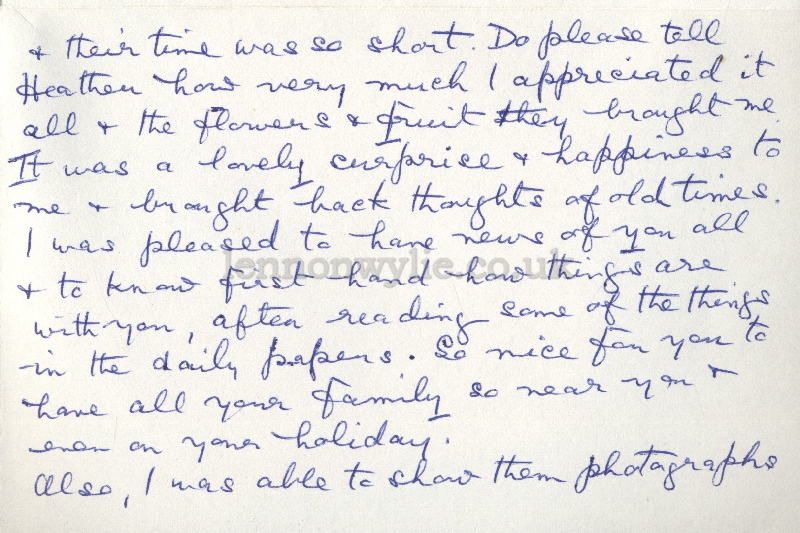 & their time was so short. Do please tell
Heather how very much I appreciated it
all & the flowers & fruit they brought me.
It was a lovely surprise & happiness to
me & brought back thoughts of old times.
I was pleased to have news of you all
lennonwylie.co.uk
& to know first-hand how things are
with you, after reading some of the things
in the daily papers. So nice for you to
have all your family so near you &
even on your holiday.
Also, I was able to show them photographs